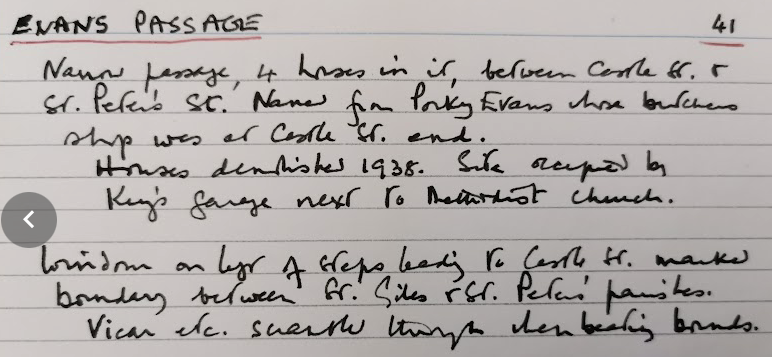 EVANS PASSAGE 41
Narrow passage, 4 houses in it, between Castle St. &
St. Peter's St. Named from Porky Evans whose butchers
shop was at Castle St. end.
Houses demolished 1938. Site occupied by
King's garage next to Methodist church.
Window on left of steps leading to Castle St. marked
boundary between St. Giles & St. Peter's parishes.
Vicar etc. scrambled through when beating bounds.